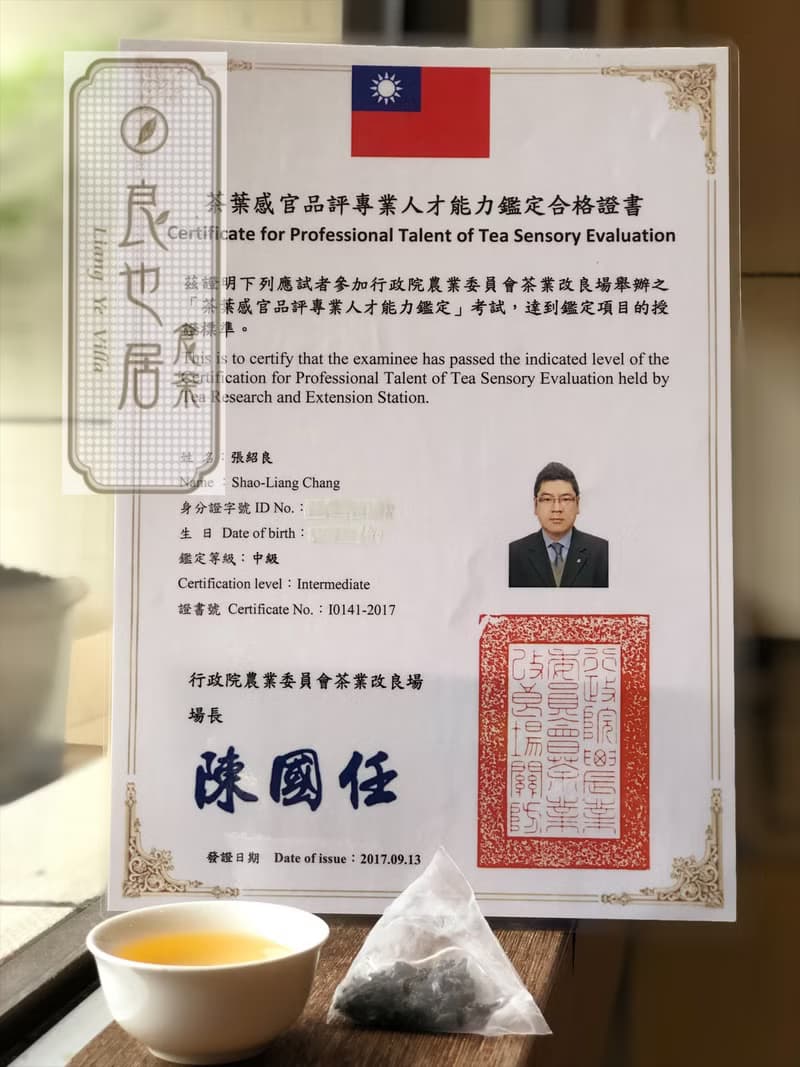 良也居
食茶
Liang Ye Villa
茶葉感官品評專業人才能力鑑定合格證書
Certificate for Professional Talent of Tea Sensory Evaluation
茲證明下列應試者參加行政院農業委員會茶業改良場舉辦之
「茶葉感官品評專業人才能力鑑定」考試，達到鑑定項目的授
證標準。
This is to certify that the examinee has passed the indicated level of the
Certification for Professional Talent of Tea Sensory Evaluation held by
Tea Research and Extension Station.
姓 名：張紹良
Name：Shao-Liang Chang
身分證字號 ID No.：
生 日 Date of birth：
鑑定等級：中級
Certification level：Intermediate
證書號 Certificate No.：I0141-2017
行政院農業委員會茶業改良場
場長
陳國任
行政院農業
委員會茶業
改良場關防
發證日期 Date of issue：2017.09.13